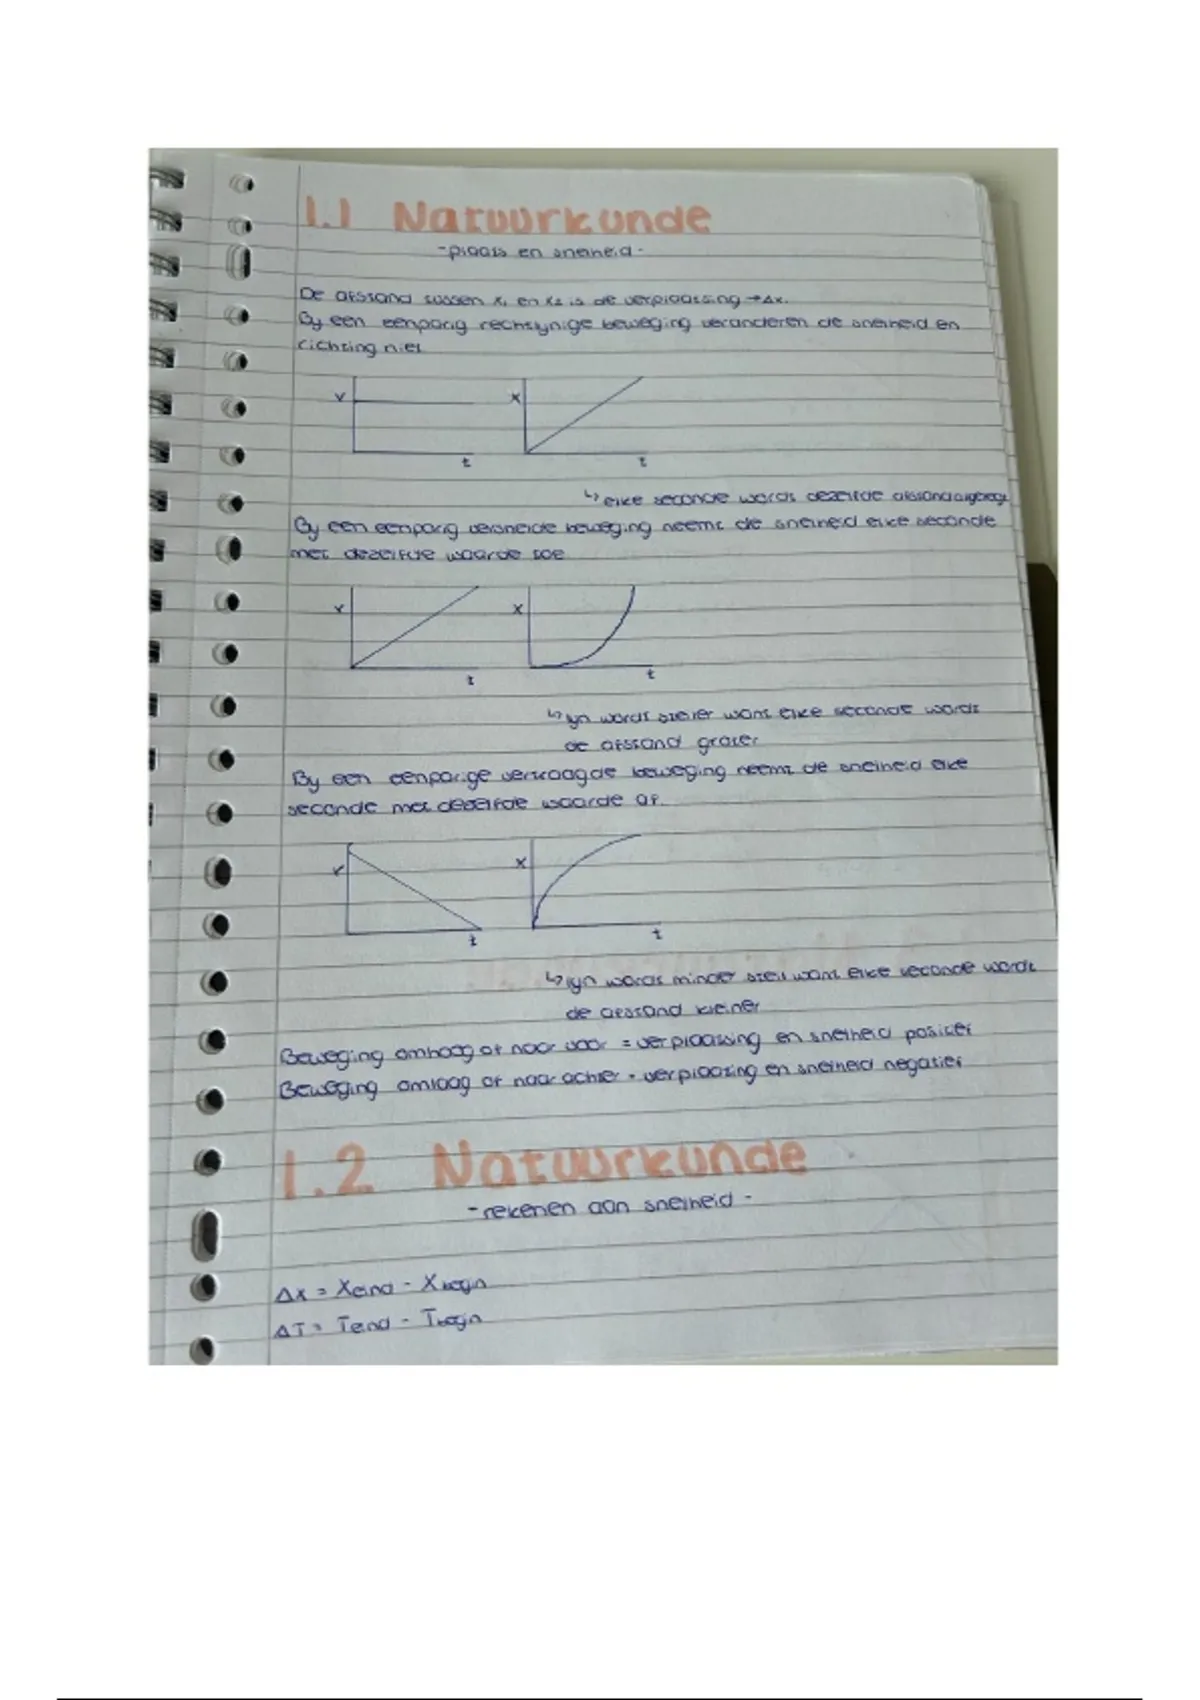 1.1 Natuurkunde
-plaats en snelheid-
De afstand tussen x₁ en x₂ is de verplaatsing → Δx.
By een eenparig rechtlynige beweging veranderen de snelheid en
richting niet
v
x
t
t
↳ elke seconde wordt dezelfde afstand afgelegt
By een eenparig versnelde beweging neemt de snelheid elke seconde
met dezelfde waarde toe
v
x
t
t
↳ lyn wordt steiler want elke seconde wordt
de afstand groter
By een eenparige vertraagde beweging neemt de snelheid elke
seconde met dezelfde waarde af.
v
x
t
t
↳ lyn wordt minder steil want elke seconde wordt
de afstand kleiner
Beweging omhoog of naar voor = verplaatsing en snelheid positief
Beweging omlaag of naar achter = verplaatsing en snelheid negatief
1.2 Natuurkunde
-rekenen aan snelheid-
Δx = Xeind - Xbegin
ΔT = Teind - Tbegin